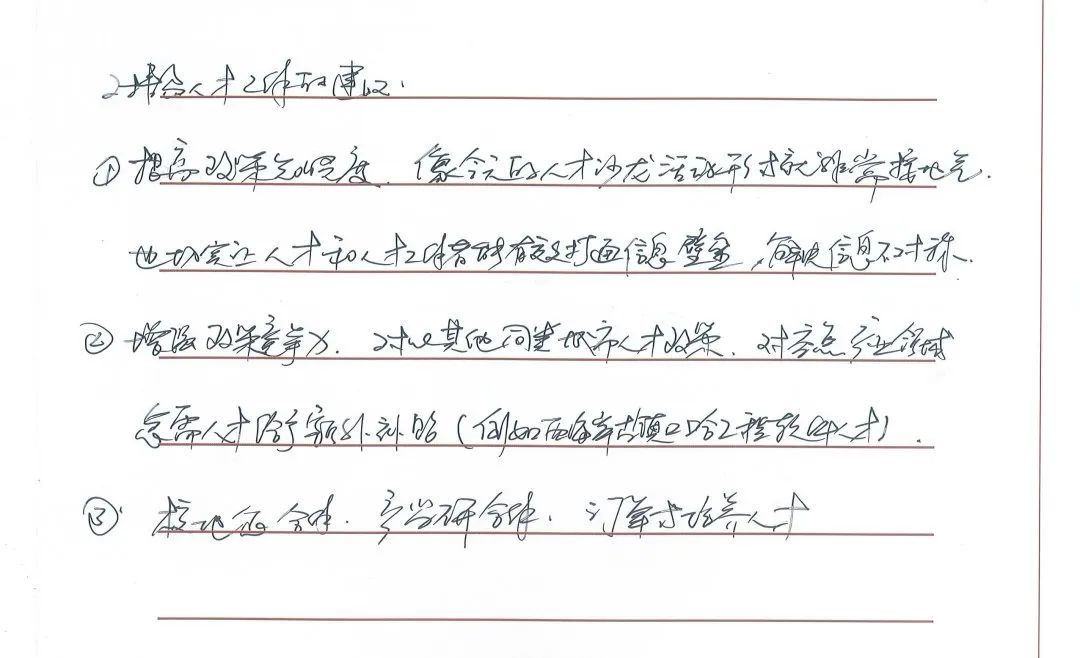 2. 对人才工作的建议:
① 提高政策知晓度. 像今天的人才沙龙活动形式就非常接地气.
也切实让人才和人才工作者能有效打通信息壁垒,解决信息不对称.
② 增强政策竞争力. 对比其他同类城市人才政策. 对重点产业领域
急需人才给予额外补贴(例如 人才).
③ 校地企合作. 产学研合作. 订单式培养人才